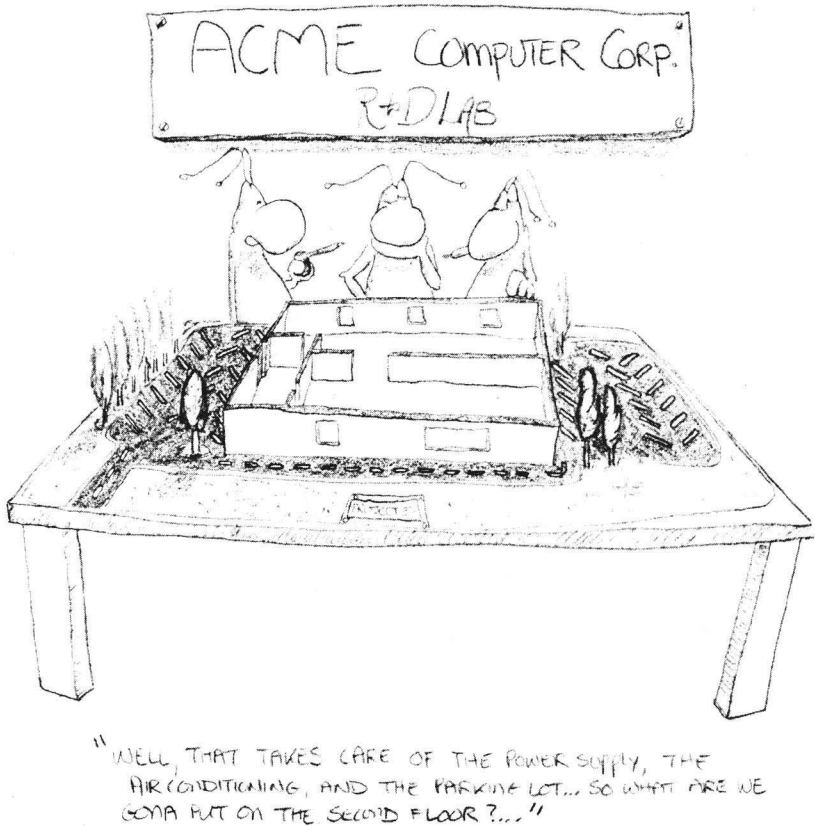 ACME COMPUTER CORP.
R+D LAB
"WELL, THAT TAKES CARE OF THE POWER SUPPLY, THE
AIRCONDITIONING, AND THE PARKING LOT... SO WHAT ARE WE
GONA PUT ON THE SECOND FLOOR?..."